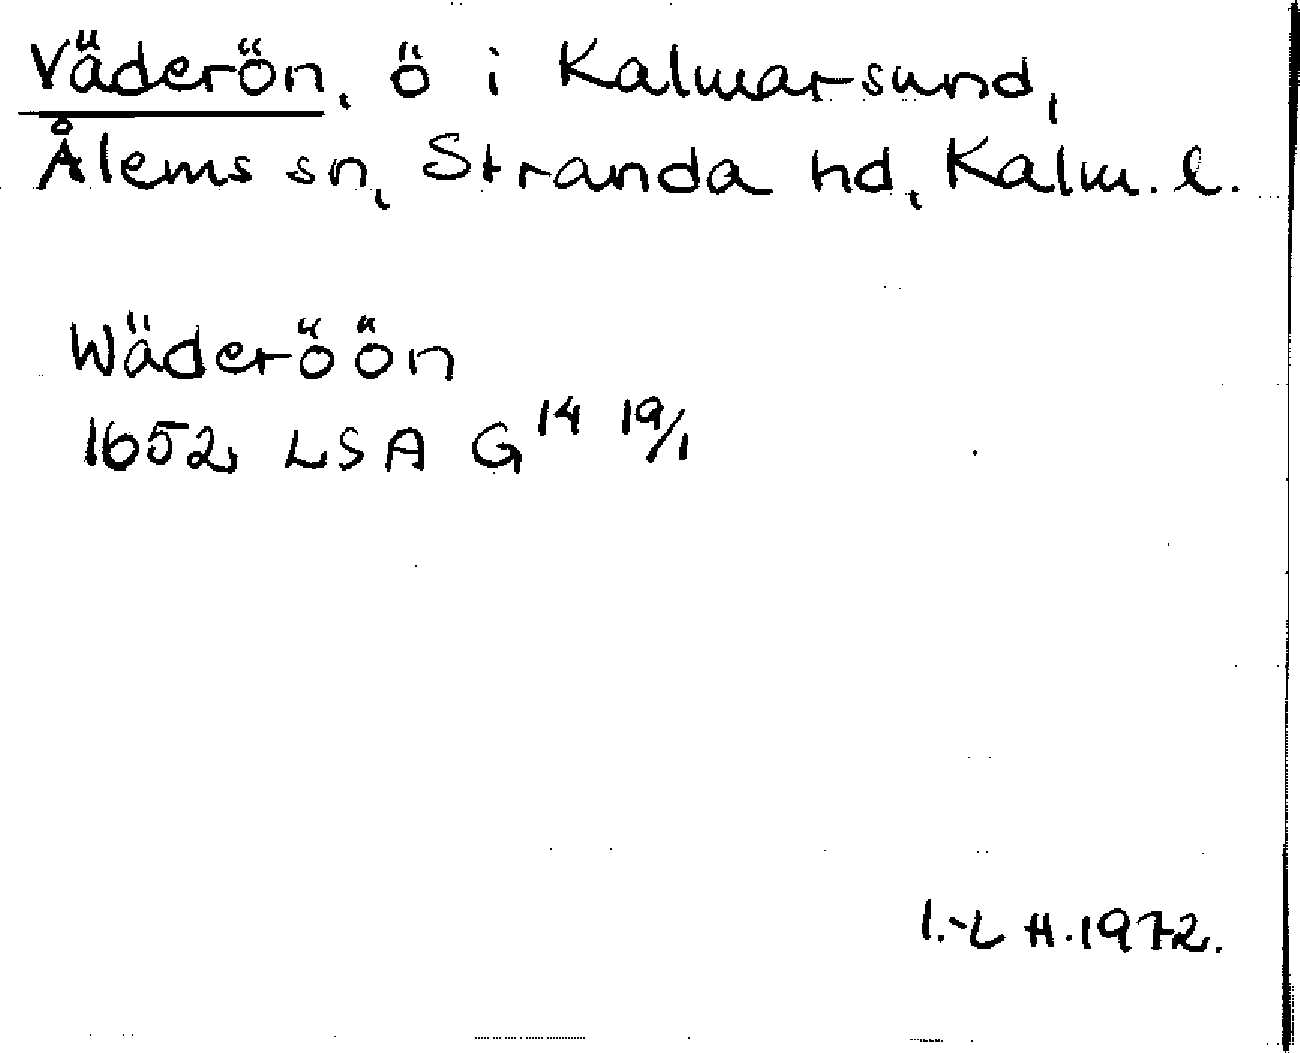 Väderön, ö i Kalmarsund,
Ålems sn, Stranda hd, Kalm. l.
Wäderöön
1652, LSA G 14 19/1
I.-L H. 1972.